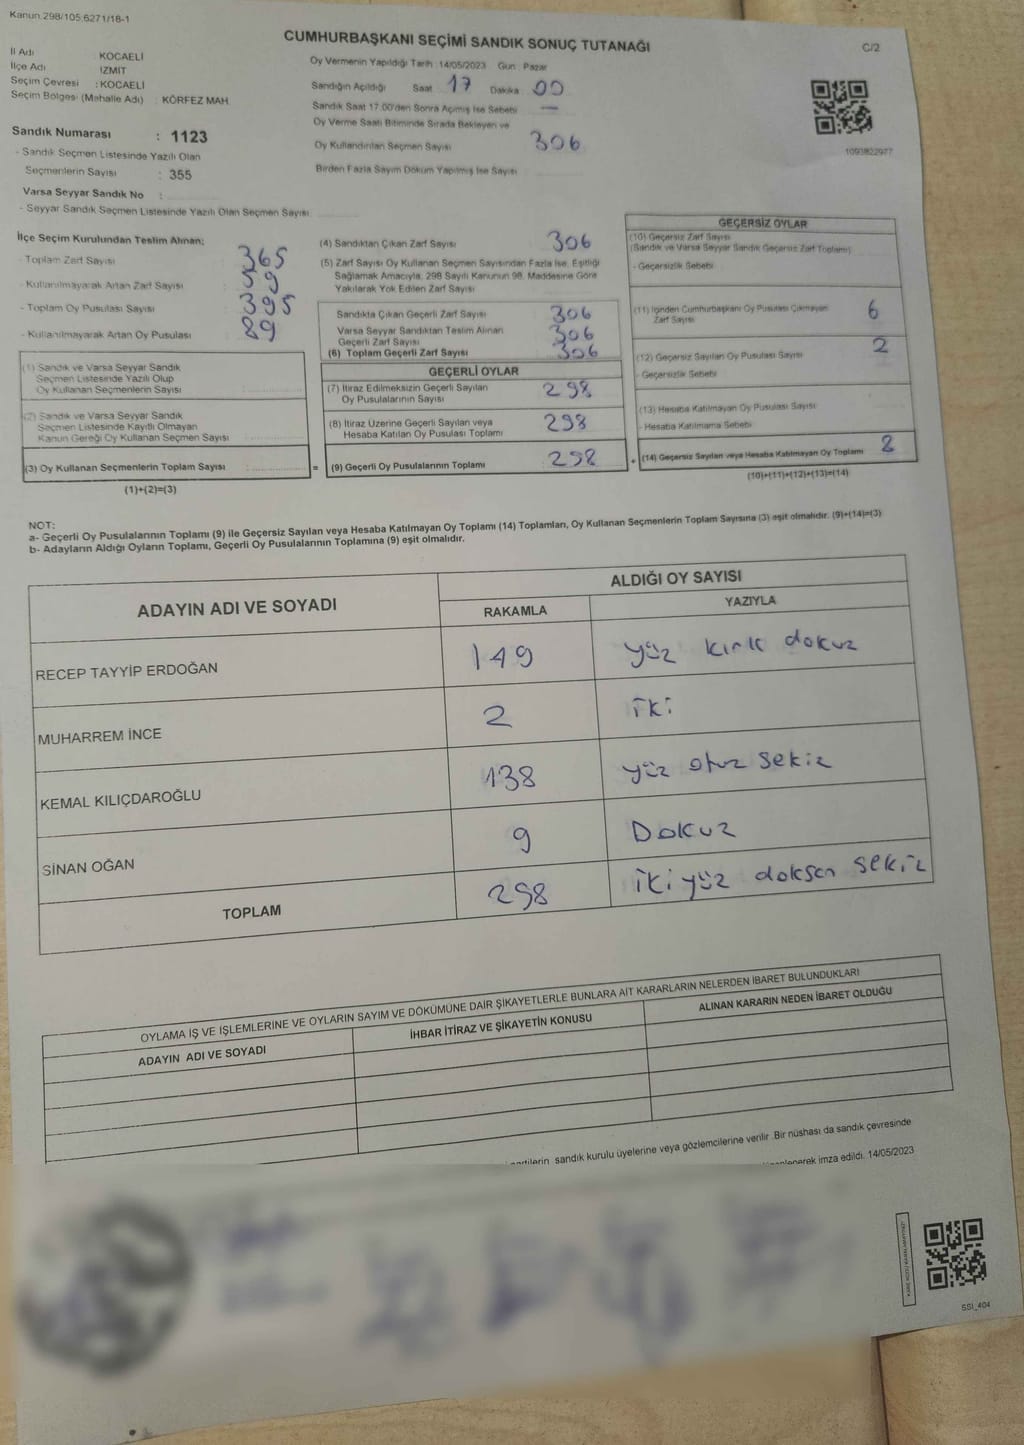 Kanun.298/105,6271/18-1
CUMHURBAŞKANI SEÇİMİ SANDIK SONUÇ TUTANAĞI
C/2
İl Adı : KOCAELİ
İlçe Adı İZMİT
Seçim Çevresi : KOCAELİ
Seçim Bölgesi (Mahalle Adı) : KÖRFEZ MAH.
Sandık Numarası : 1123
- Sandık Seçmen Listesinde Yazılı Olan
Seçmenlerin Sayısı : 355
Varsa Seyyar Sandık No :
- Seyyar Sandık Seçmen Listesinde Yazılı Olan Seçmen Sayısı
Oy Vermenin Yapıldığı Tarih :14/05/2023 Gün : Pazar
Sandığın Açıldığı Saat 17 Dakika 00
Sandık Saat 17.00'den Sonra Açılmış İse Sebebi —
Oy Verme Saati Bitiminde Sırada Bekleyen ve
Oy Kullandırılan Seçmen Sayısı 306
Birden Fazla Sayım Döküm Yapılmış İse Sayısı
1093822977
İlçe Seçim Kurulundan Teslim Alınan;
- Toplam Zarf Sayısı 365
- Kullanılmayarak Artan Zarf Sayısı 59
- Toplam Oy Pusulası Sayısı 395
- Kullanılmayarak Artan Oy Pusulası 89
(1) Sandık ve Varsa Seyyar Sandık
Seçmen Listesinde Yazılı Olup
Oy Kullanan Seçmenlerin Sayısı
(2) Sandık ve Varsa Seyyar Sandık
Seçmen Listesinde Kayıtlı Olmayan
Kanun Gereği Oy Kullanan Seçmen Sayısı
(3) Oy Kullanan Seçmenlerin Toplam Sayısı
(1)+(2)=(3)
(4) Sandıktan Çıkan Zarf Sayısı 306
(5) Zarf Sayısı Oy Kullanan Seçmen Sayısından Fazla İse, Eşitliği
Sağlamak Amacıyla, 298 Sayılı Kanunun 98. Maddesine Göre
Yakılarak Yok Edilen Zarf Sayısı
Sandıkta Çıkan Geçerli Zarf Sayısı 306
Varsa Seyyar Sandıktan Teslim Alınan
Geçerli Zarf Sayısı 306
(6) Toplam Geçerli Zarf Sayısı 306
GEÇERLİ OYLAR
(7) İtiraz Edilmeksizin Geçerli Sayılan
Oy Pusulalarının Sayısı 298
(8) İtiraz Üzerine Geçerli Sayılan veya
Hesaba Katılan Oy Pusulası Toplamı 298
= (9) Geçerli Oy Pusulalarının Toplamı 298
GEÇERSİZ OYLAR
(10) Geçersiz Zarf Sayısı
(Sandık ve Varsa Seyyar Sandık Geçersiz Zarf Toplamı)
- Geçersizlik Sebebi
(11) İçinden Cumhurbaşkanı Oy Pusulası Çıkmayan
Zarf Sayısı 6
(12) Geçersiz Sayılan Oy Pusulası Sayısı 2
- Geçersizlik Sebebi
(13) Hesaba Katılmayan Oy Pusulası Sayısı
- Hesaba Katılmama Sebebi
+ (14) Geçersiz Sayılan veya Hesaba Katılmayan Oy Toplamı 8
(10)+(11)+(12)+(13)=(14)
NOT:
a- Geçerli Oy Pusulalarının Toplamı (9) ile Geçersiz Sayılan veya Hesaba Katılmayan Oy Toplamı (14) Toplamları, Oy Kullanan Seçmenlerin Toplam Sayısına (3) eşit olmalıdır. (9)+(14)=(3)
b- Adayların Aldığı Oyların Toplamı, Geçerli Oy Pusulalarının Toplamına (9) eşit olmalıdır.
ADAYIN ADI VE SOYADI
ALDIĞI OY SAYISI
RAKAMLA YAZIYLA
RECEP TAYYİP ERDOĞAN 149 yüz kırk dokuz
MUHARREM İNCE 2 iki
KEMAL KILIÇDAROĞLU 138 yüz otuz sekiz
SİNAN OĞAN 9 Dokuz
TOPLAM 298 iki yüz doksan sekiz
OYLAMA İŞ VE İŞLEMLERİNE VE OYLARIN SAYIM VE DÖKÜMÜNE DAİR ŞİKAYETLERLE BUNLARA AİT KARARLARIN NELERDEN İBARET BULUNDUKLARI
ADAYIN ADI VE SOYADI İHBAR İTİRAZ VE ŞİKAYETİN KONUSU ALINAN KARARIN NEDEN İBARET OLDUĞU
sandık kurulu üyelerine veya gözlemcilerine verilir. Bir nüshası da sandık çevresinde
imza edildi. 14/05/2023
SSI_404